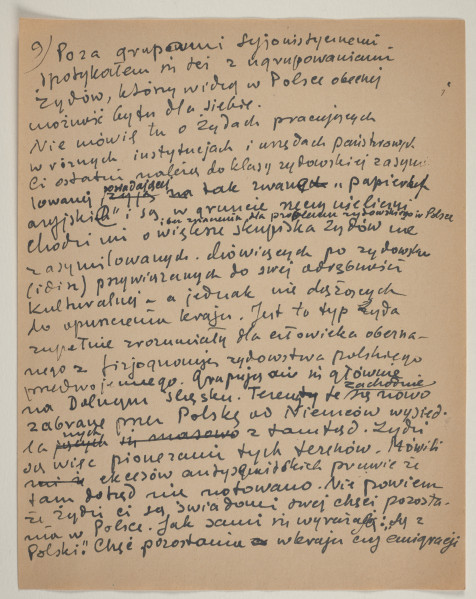 9) Poza grupami syjonistycznemi
spotykałem się też z ugrupowaniami
Żydów, którzy widzą w Polsce obecnej
możność bytu dla siebie.
Nie mówię tu o Żydach pracujących
w różnych instytucjach i urzędach państwowych
Ci ostatni należą do klasy żydowskiej zasymi-
lowanej posiadającej żyją na tak zwane „papiery
aryjskie" i są w gruncie rzeczy nieliczni
i bez znaczenia dla problemu żydowskiego w Polsce
Chodzi mi o większe skupiska Żydów nie
zasymilowanych. Mówiących po żydowsku
(idisz) przywiązanych do swej odrębności
kulturalnej – a jednak nie dążących
do opuszczenia kraju. Jest to typ Żyda
zupełnie zrozumiały dla człowieka obezna-
nego z fizjognomją żydowstwa polskiego
przedwojennego. Grupują oni się głównie
na Dolnym Śląsku. Tereny te są nowo
zachodnie
zabrane przez Polskę od Niemców wysied-
lanych masowo z tamtąd. Żydzi
są więc pionierami tych terenów. Mówili
mi że ekscesów antysemickich prawie że
tam dotąd nie notowano. Nie powiem
że Żydzi ci są świadomi swej chęci pozosta-
nia w Polsce. Jak sami się wyrażają: są z
Polski: Chęć pozostania w kraju czy emigracji